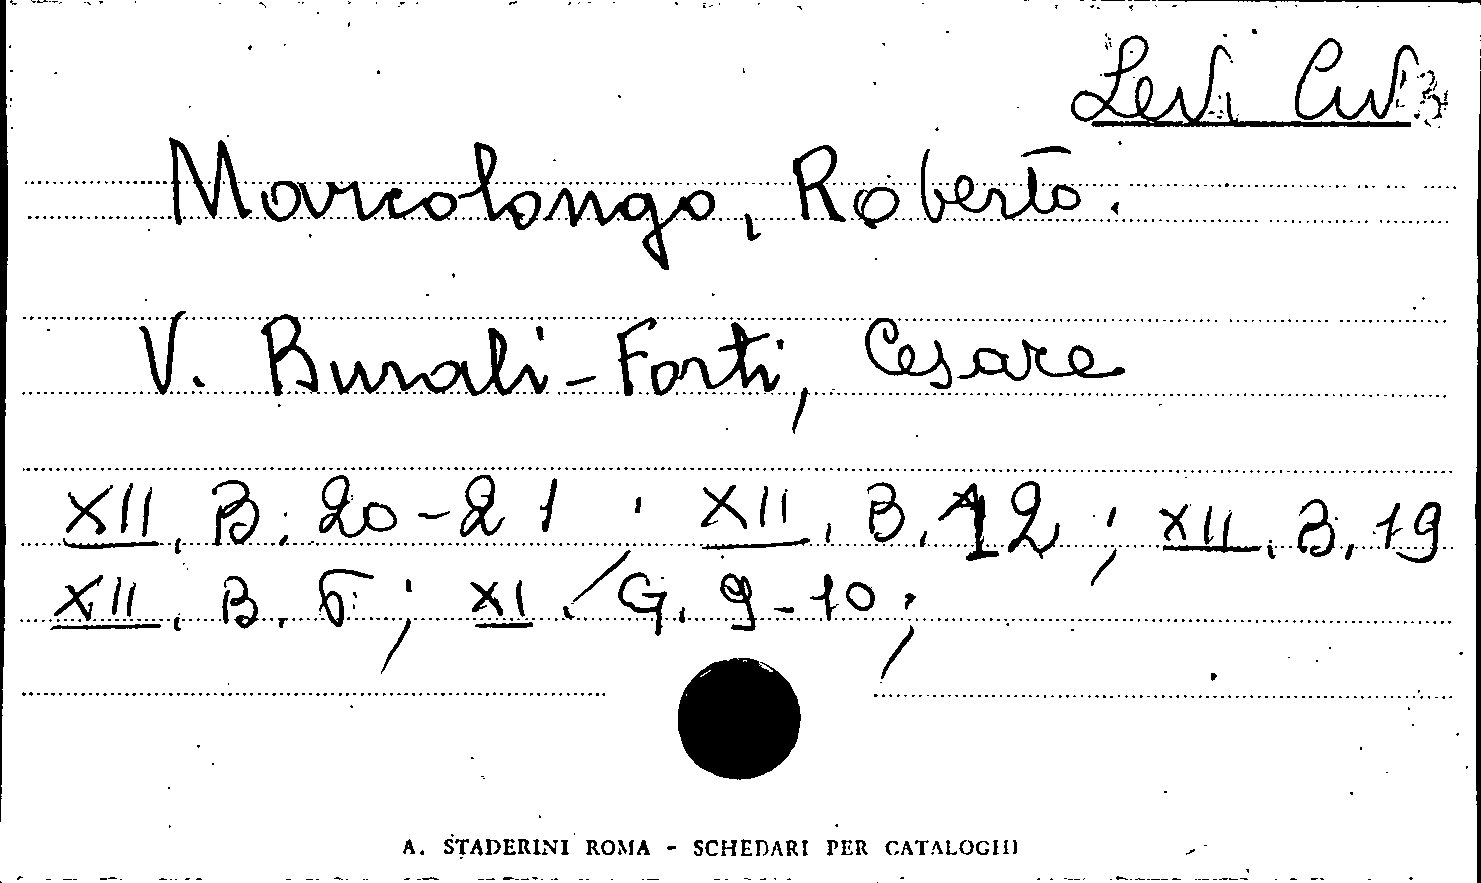 Levi Civ
Marcolongo, Roberto.
V. Burali-Forti, Cesare
XII. B. 20-21; XII. B. 12; XII. B. 19
XII. B. 6; XI. G. 9-10;
A. STADERINI ROMA - SCHEDARI PER CATALOGHI